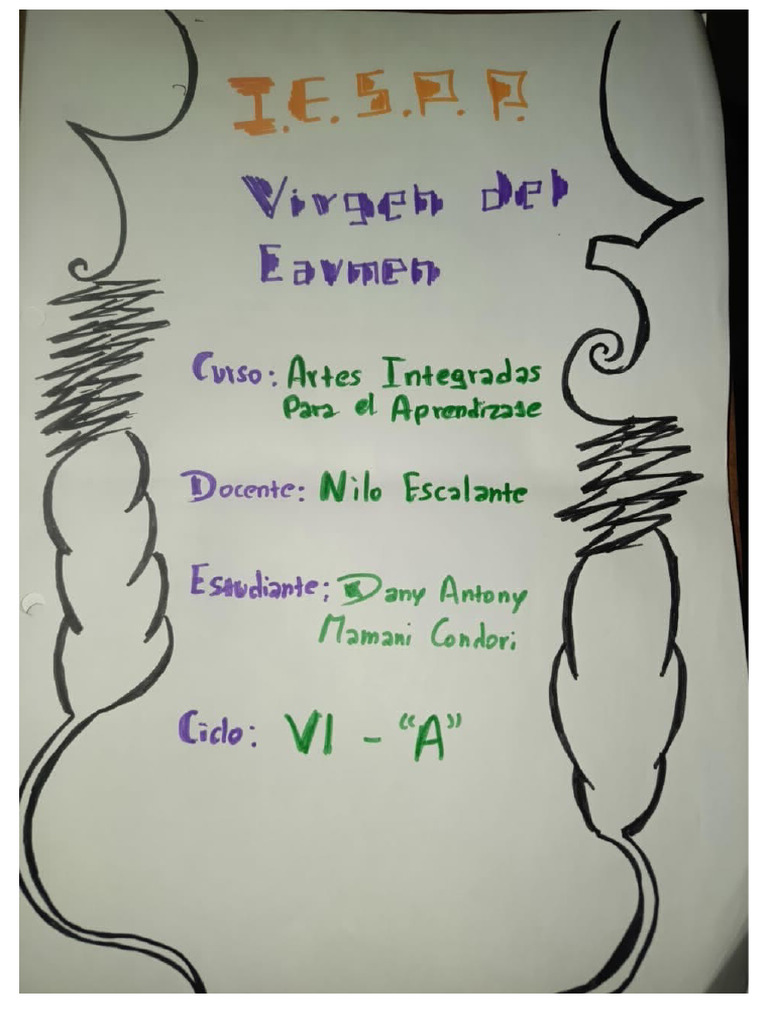 I.E.S.P.P.
Virgen del
Carmen
Curso: Artes Integradas
Para el Aprendizaje
Docente: Nilo Escalante
Estudiante: Dany Antony
Mamani Condori
Ciclo: VI - "A"